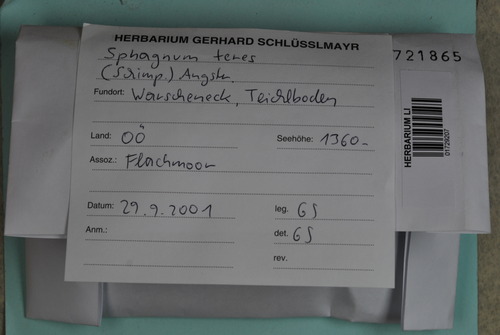 HERBARIUM GERHARD SCHLÜSSLMAYR
Sphagnum teres
(Schimp.) Ångstr.
Fundort: Warscheneck, Teichlboden
Land: OÖ Seehöhe: 1360-
Assoz.: Flachmoor
Datum: 29.9.2001 leg. GS
Anm.: det. GS
rev.
721865
HERBARIUM LI
01729207